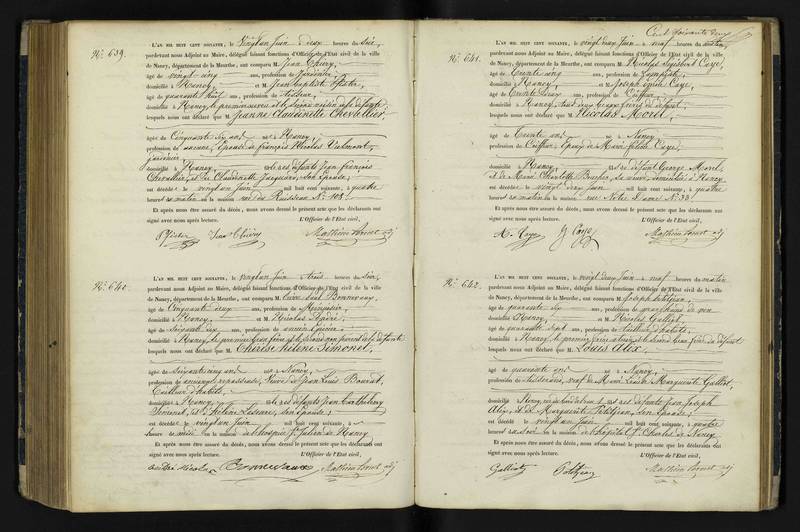 N° 639.
L'AN MIL HUIT CENT SOIXANTE, le vingt un Juin à deux heures du soir,
pardevant nous Adjoint au Maire, délégué faisant fonctions d'Officier de l'Etat civil de la ville
de Nancy, département de la Meurthe, ont comparu M. Jean Thiery,
âgé de vingt cinq ans, profession de Jardinier,
domicilié à Nancy et M. Jean Baptiste Pfister,
âgé de quarante huit ans, profession de tisseur,
domicilié à Nancy, le premier neveu et le second voisin de la défunte
lesquels nous ont déclaré que M. Jeanne Claudinette Chevallier,
âgée de Cinquante six ans née à Nancy,
profession de épouse de françois Nicolas Vuilmont,
jardinier,
domiciliée à Nancy, des défunts Jean françois
Chevallier, et de Claudinette Jacquard, son Epouse,
est décédée le vingt un Juin mil huit cent soixante, à quatre
heures du matin en la maison rue du Ruisseau N° 108.
Et après nous être assuré du décès, nous avons dressé le présent acte que les déclarants ont
signé avec nous après lecture. L'Officier de l'Etat civil,
Pfister Jean Thiery
N° 640.
L'AN MIL HUIT CENT SOIXANTE, le vingt un Juin à trois heures du soir,
pardevant nous Adjoint au Maire, délégué faisant fonctions d'Officier de l'Etat civil de la ville
de Nancy, département de la Meurthe, ont comparu M.
âgé de Cinquante deux ans, profession de Menuisier,
domicilié à Nancy, et M. Nicolas André,
âgé de soixante six ans, profession de
domicilié à Nancy, le premier et le second non parent de la défunte
lesquels nous ont déclaré que M. Thérèse hélène Simonet,
âgée de soixante cinq ans née à Nancy,
profession de repasseuse, Veuve de Jean Louis
Tailleur d'habits,
domiciliée à Nancy, des défunts Jean Barthélemy
Simonet, et d'hélène son Epouse,
est décédée le vingt un Juin mil huit cent soixante, à
heure de midi en la maison de l'hospice St Julien de Nancy
Et après nous être assuré du décès, nous avons dressé le présent acte que les déclarants ont
signé avec nous après lecture. L'Officier de l'Etat civil,
andré nicolas
Cent soixante deux
N° 641.
L'AN MIL HUIT CENT SOIXANTE, le vingt deux Juin à neuf heures du matin,
pardevant nous Adjoint au Maire, délégué faisant fonctions d'Officier de l'Etat civil de la ville
de Nancy, département de la Meurthe, ont comparu M. Nicolas Caye,
âgé de Trente cinq ans, profession de Lampiste,
domicilié à Nancy et M. Joseph Caye,
âgé de Trente deux ans, profession de Coiffeur,
domicilié à Nancy, tous deux beaux frères du défunt,
lesquels nous ont déclaré que M. Nicolas Morel,
âgé de Trente ans né à Nancy,
profession de Coiffeur, Epoux de Marie Caye,
domicilié à Nancy, fils de défunt George Morel,
et de Marie Charlotte sa veuve, domiciliée à Nancy
est décédé le vingt deux Juin mil huit cent soixante, à quatre
heures du matin en la maison rue Notre Dame N° 33
Et après nous être assuré du décès, nous avons dressé le présent acte que les déclarants ont
signé avec nous après lecture. L'Officier de l'Etat civil,
N. Caye J. Caye
N° 642.
L'AN MIL HUIT CENT SOIXANTE, le vingt deux Juin à neuf heures du matin
pardevant nous Adjoint au Maire, délégué faisant fonctions d'Officier de l'Etat civil de la ville
de Nancy, département de la Meurthe, ont comparu M. Joseph Petitjean,
âgé de quarante six ans, profession de marchand de vin
domicilié à Nancy, et M. Nicolas Galliot,
âgé de quarante sept ans, profession de tailleur d'habits,
domicilié à Nancy, le premier frère et le second beau frère du défunt
lesquels nous ont déclaré que M. Louis Alix,
âgé de quarante ans né à Nancy,
profession de veuf de Marie Louise Marguerite Galliot,
domicilié à Nancy, fils des défunts Joseph
Alix, et de Marguerite Petitjean, son Epouse,
est décédé le vingt un Juin mil huit cent soixante, à quatre
heures du soir en la maison de l'hôpital St Charles de Nancy
Et après nous être assuré du décès, nous avons dressé le présent acte que les déclarants ont
signé avec nous après lecture. L'Officier de l'Etat civil,
Galliot Petitjean